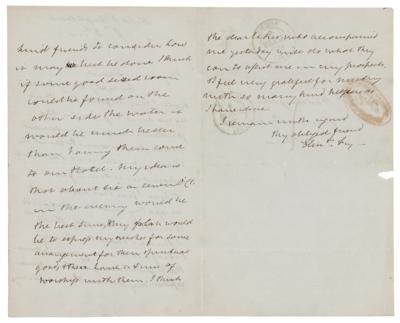 kind friends to consider how
it may be best be done I think
if some good sized room
could be found on the
other side the water it
would be much better
than having them come
to our Hotel. My idea is
that about six or seven o'Cl.
in the evening would be
the best time, & my plan would
be to express my wishes for some
arrangement for their spiritual
good, & then have a time of
worship with them. I think
the dear ladies who accompanied
me yesterday will do what they
can to assist me in my prospects.
I feel very grateful for meeting
with so many kind helpers as
I have done.
I remain with regard
thy obliged friend
Eliz. Fry